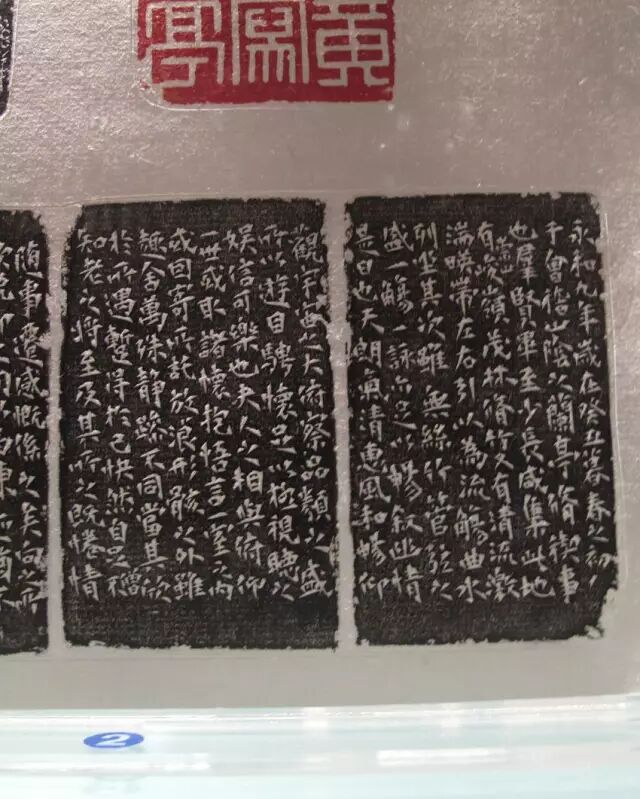 永和九年歲在癸丑暮春之初
于會稽山陰之蘭亭脩禊事
也羣賢畢至少長咸集此地
有崇山峻領茂林脩竹又有清流激
湍暎帶左右引以為流觴曲水
列坐其次雖無絲竹管弦之
盛一觴一詠亦足以暢敘幽情
是日也天朗氣清惠風和暢仰
觀宇宙之大俯察品類之盛
所以遊目騁懷足以極視聽之
娛信可樂也夫人之相與俯仰
一世或取諸懷抱悟言一室之內
或因寄所託放浪形骸之外雖
趣舍萬殊靜躁不同當其欣
於所遇蹔得於己快然自足不
知老之將至及其所之既惓情
隨事遷感慨係之矣向之所
2